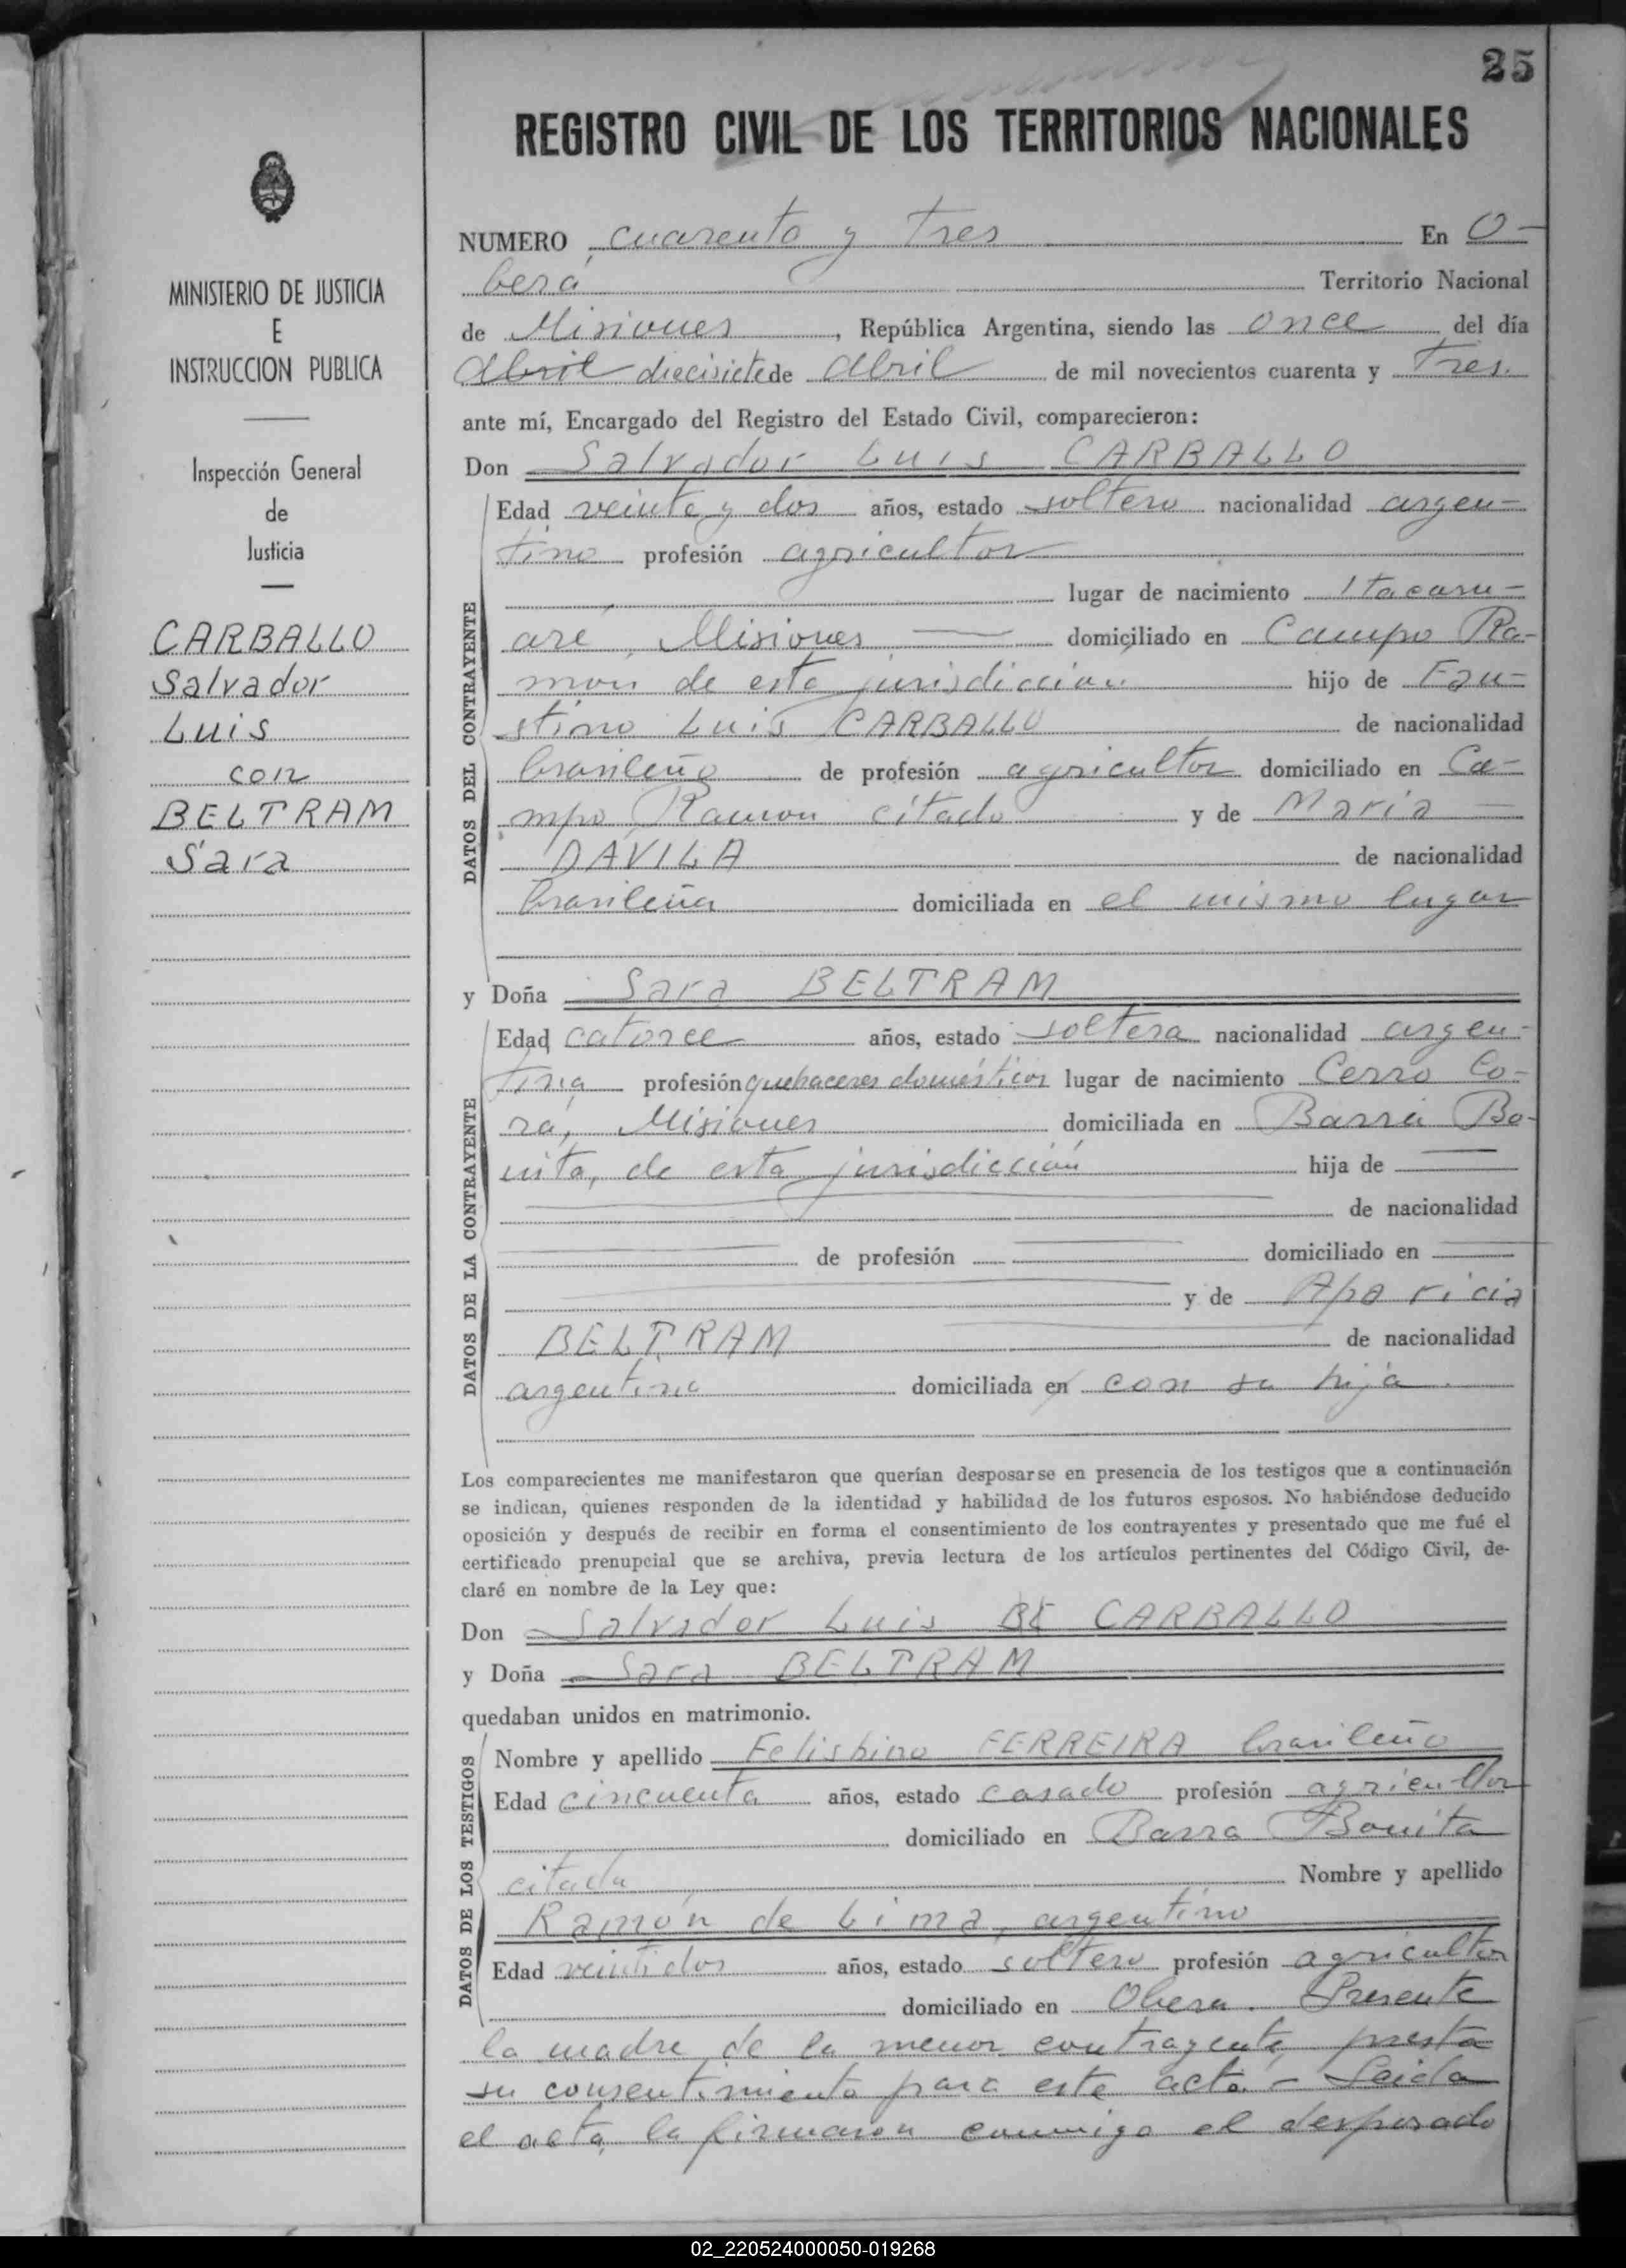 25
REGISTRO CIVIL DE LOS TERRITORIOS NACIONALES
MINISTERIO DE JUSTICIA
E
INSTRUCCION PUBLICA
Inspección General
de
Justicia
CARBALLO
Salvador
Luis
con
BELTRAM
Sara
NUMERO cuarenta y tres En O-
berá Territorio Nacional
de Misiones, República Argentina, siendo las once del día
Abril diecisiete de Abril de mil novecientos cuarenta y tres.
ante mí, Encargado del Registro del Estado Civil, comparecieron:
Don Salvador Luis CARBALLO
DATOS DEL CONTRAYENTE
Edad veinte y dos años, estado soltero nacionalidad argen-
tino profesión agricultor
lugar de nacimiento Itacaru-
aré, Misiones domiciliado en Campo Ra-
mon de esta jurisdiccion hijo de Fau-
stino Luis CARBALLO de nacionalidad
brasileño de profesión agricultor domiciliado en Ca-
mpo Ramon citado y de Maria
DAVILA de nacionalidad
brasileña domiciliada en el mismo lugar
y Doña Sara BELTRAM
DATOS DE LA CONTRAYENTE
Edad catorce años, estado soltera nacionalidad argen-
tina profesión quehaceres domésticos lugar de nacimiento Cerro Co-
rá, Misiones domiciliada en Barra Bo-
nita, de esta jurisdicción hija de
de nacionalidad
de profesión domiciliado en
y de Aparicia
BELTRAM de nacionalidad
argentina domiciliada en con su hija.
Los comparecientes me manifestaron que querían desposarse en presencia de los testigos que a continuación
se indican, quienes responden de la identidad y habilidad de los futuros esposos. No habiéndose deducido
oposición y después de recibir en forma el consentimiento de los contrayentes y presentado que me fué el
certificado prenupcial que se archiva, previa lectura de los artículos pertinentes del Código Civil, de-
claré en nombre de la Ley que:
Don Salvador Luis BE CARBALLO
y Doña Sara BELTRAM
quedaban unidos en matrimonio.
DATOS DE LOS TESTIGOS
Nombre y apellido Felisbino FERREIRA brasileño
Edad cincuenta años, estado casado profesión agricultor
domiciliado en Barra Bonita
citada Nombre y apellido
Ramón de Lima, argentino
Edad veintidos años, estado soltero profesión agricultor
domiciliado en Obera. Presente
la madre de la menor contrayente, presta
su consentimiento para este acto - Leida
el acta, la firmaron conmigo el desposado
02_220524000050-019268